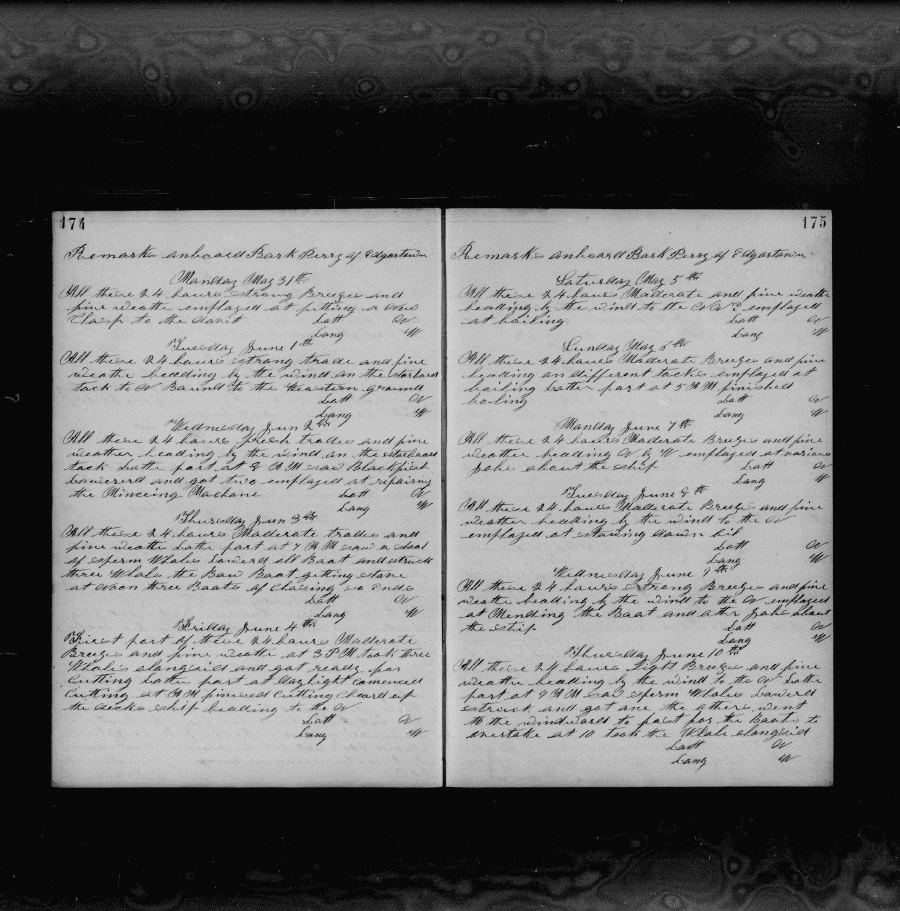 174
Remarks onboard Bark Perry of Edgartown
Monday May 31th
All these 24 hours strong Breeze and
fine weathe employed at fitting a New
Clasp to the davit Latt N
Long W
Tuesday June 1th
All these 24 hours strong trade and fine
weathe heading by the wind on the starbord
tack to N Bound to the Western ground
Latt N
Long W
Wednesday Jun 2th
All these 24 hours fresh trades and fine
weather heading by the wind on the starboard
tack Latte part at 8 A M saw Blackfish
Lowererd and got two employed at repairing
the Minceing Machane Latt N
Long W
Thursday Jun 3th
All these 24 hours Maderate trades and
fine weathe Latte part at 7 A M saw a shoal
of sperm Whale Lowerd all Boat and struck
three Whale the Bow Boat getting stove
at Noon three Boats of Chasing so Ends
Latt N
Long W
Friday June 4th
Friest part of these 24 hours Maderate
Breeze and fine weathe at 3 P M took three
Whale alongsid and got ready for
Cutting Latte part at daylight comenced
Cutting at A M finised Cutting cleard up
the decks ship heading to the N
Latt N
Long W
175
Remarks onboard Bark Perry of Edgartown
Saturday May 5th
All these 24 hours Maderate and fine weathe
heading by the wind to the N N E employed
at boiling Latt N
Long W
Sunday May 6th
All these 24 hours Maderate Breeze and fine
heading on different tacks employed at
boiling Latter part at 5 A M finished
boiling Latt N
Long W
Monday June 7th
All these 24 hours Maderate Breeze and fine
weathe heading N by W employed at various
Jobs about the ship Latt N
Long W
Tuesday June 8th
All these 24 hours Maderate Breeze and fine
weather heading by the wind to the N
employed at stowing down oil
Latt N
Long W
Wednesday June 9th
All these 24 hours strong Breeze and fine
weathe heading by the wind to the N employed
at Mending the Boat and othr Jobs about
the ship Latt N
Long W
Thursday June 10th
All these 24 hours light Breeze and fine
weathe heading by the wind to the N Latte
part at 9 A M saw sperm Whales Lowerd
struck and got one the others went
to the windward to fast for the Boats to
overtake at 10 took the Whale alongsid
Latt N
Long W